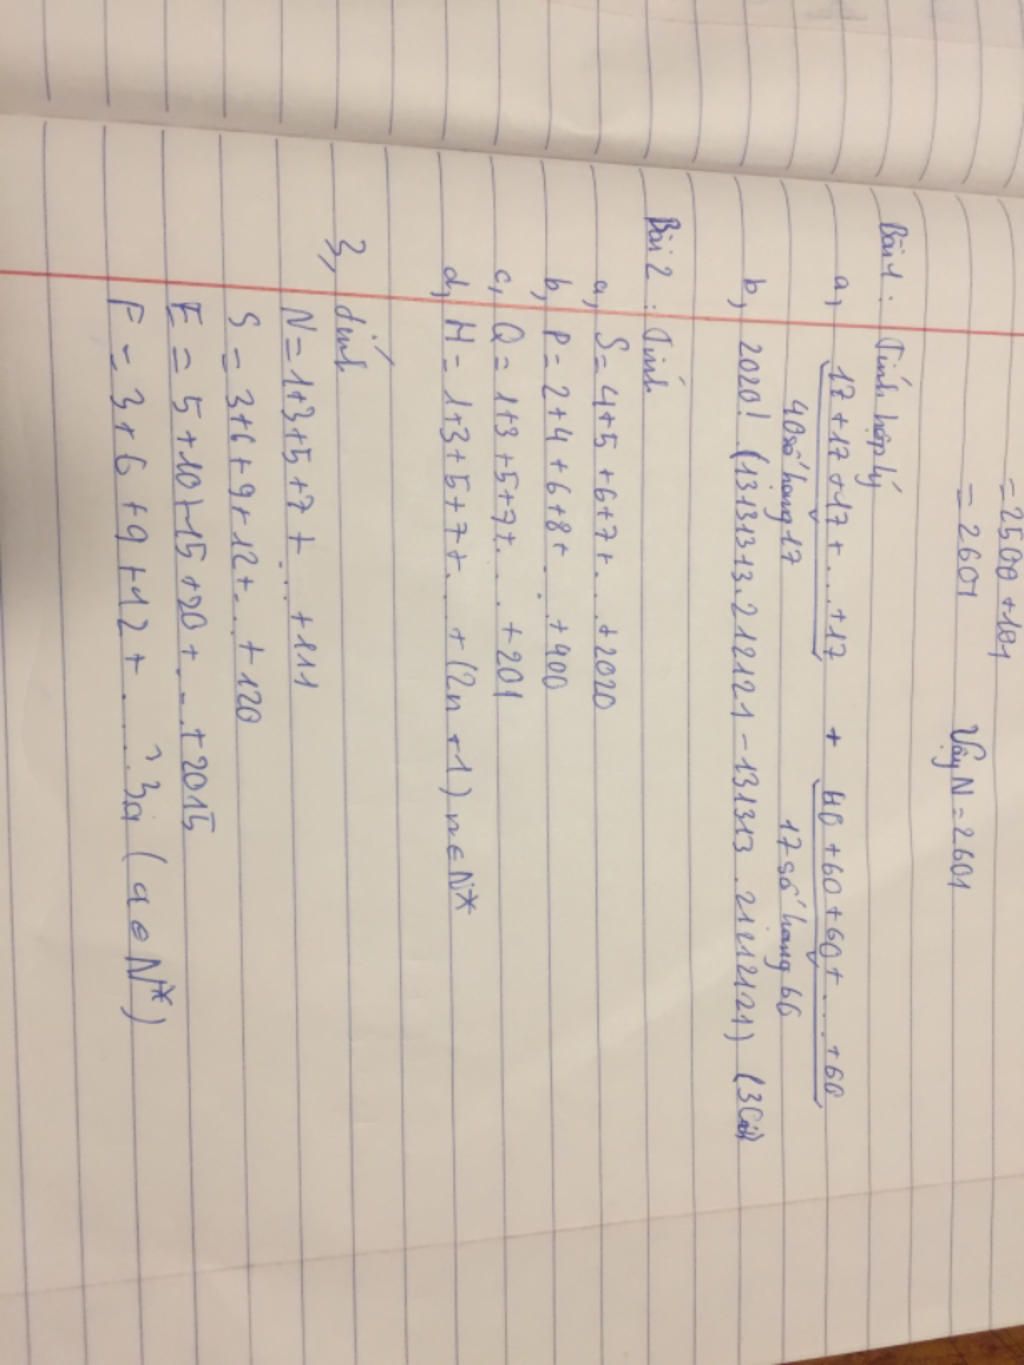 = 2500 + 101
= 2601 Vậy N = 2601
Bài 1: Tính hợp lý
a, 17 + 17 + 17 + ... + 17 + 60 + 60 + 60 + ... + 60
40 số hạng 17 17 số hạng 60
b, 2020! (13131313.212121 - 131313.21212121) (3 Cách)
Bài 2: Tính
a, S = 4 + 5 + 6 + 7 + ... + 2020
b, P = 2 + 4 + 6 + 8 + ... + 400
c, Q = 1 + 3 + 5 + 7 + ... + 201
d, H = 1 + 3 + 5 + 7 + ... + (2n + 1) n ∈ N*
3, Tính
N = 1 + 3 + 5 + 7 + ... + 111
S = 3 + 6 + 9 + 12 + ... + 120
E = 5 + 10 + 15 + 20 + ... + 2015
F = 3 + 6 + 9 + 12 + ... 3a (a ∈ N*)